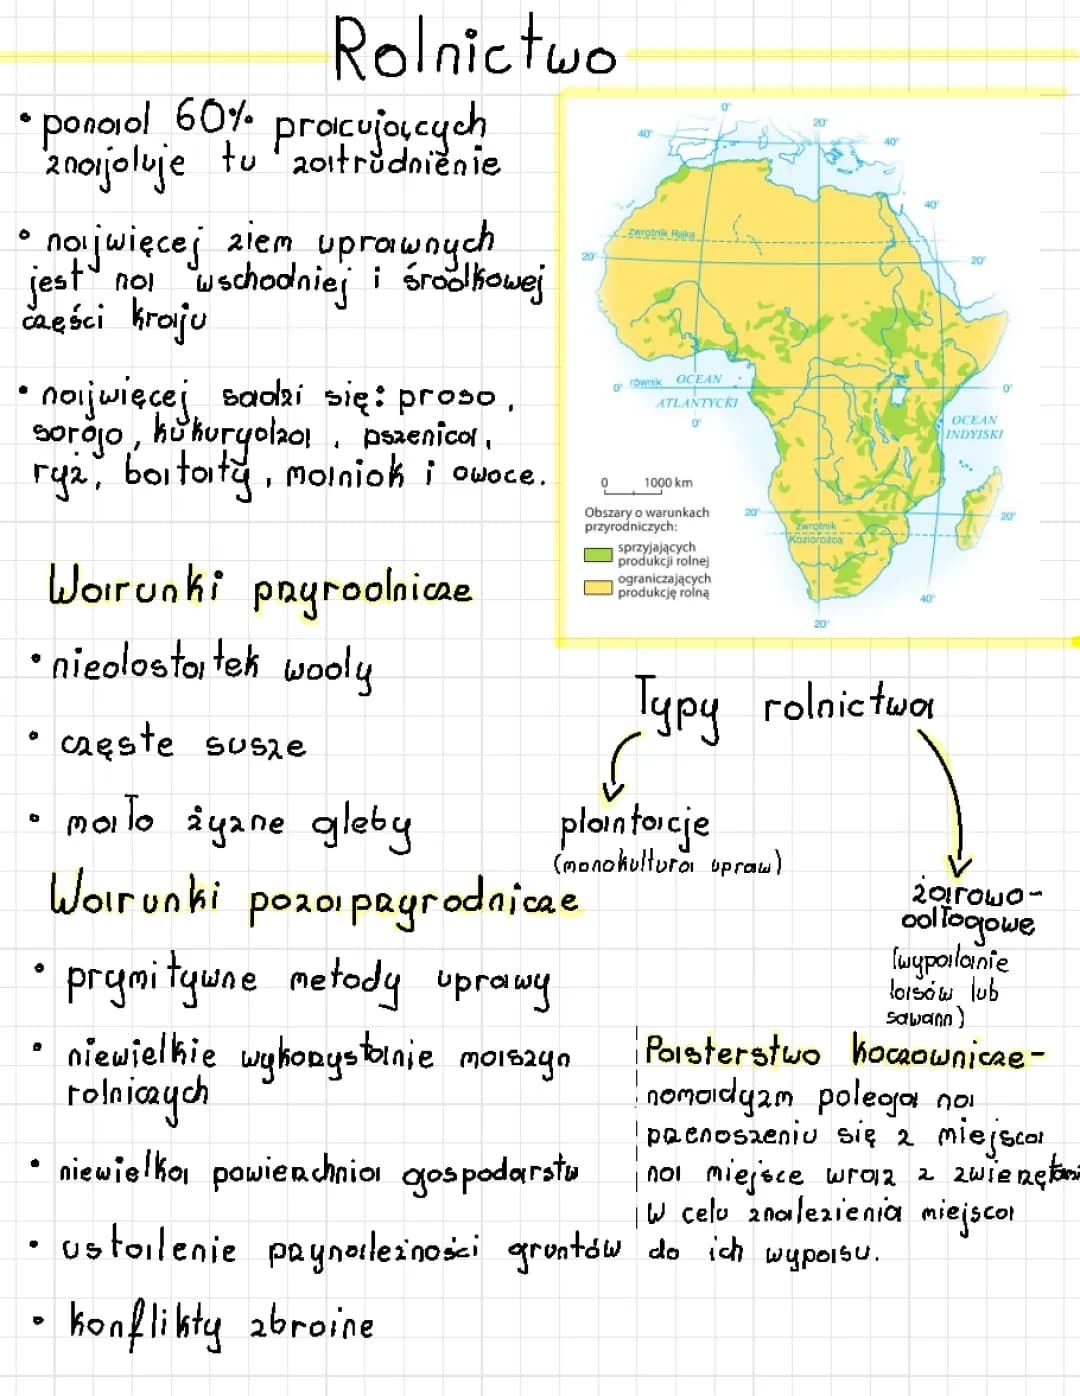 Rolnictwo
• ponad 60% pracujących
znajduje tu zatrudnienie
• najwięcej ziem uprawnych
jest na wschodniej i środkowej
części kraju
• najwięcej sadzi się: proso,
sorgo, kukurydza, pszenica,
ryż, bataty, maniok i owoce.
Warunki przyrodnicze
• niedostatek wody
• częste susze
• mało żyzne gleby
Warunki pozaprzyrodnicze
• prymitywne metody uprawy
• niewielkie wykorzystanie maszyn
rolniczych
• niewielka powierzchnia gospodarstw
• ustalenie przynależności gruntów
• konflikty zbrojne
0°
20°
40°
40°
40°
zwrotnik Raka
20°
20°
0° równik
OCEAN
ATLANTYCKI
0°
0°
OCEAN
INDYJSKI
0 1000 km
Obszary o warunkach
przyrodniczych:
sprzyjających
produkcji rolnej
ograniczających
produkcję rolną
20°
zwrotnik
Koziorożca
20°
40°
20°
Typy rolnictwa
plantacje
(monokultura upraw)
żarowo-
odłogowe
(wypalanie
lasów lub
sawann)
Pasterstwo koczownicze-
nomadyzm polega na
przenoszeniu się z miejsca
na miejsce wraz z zwierzętami
W celu znalezienia miejsca
do ich wypasu.